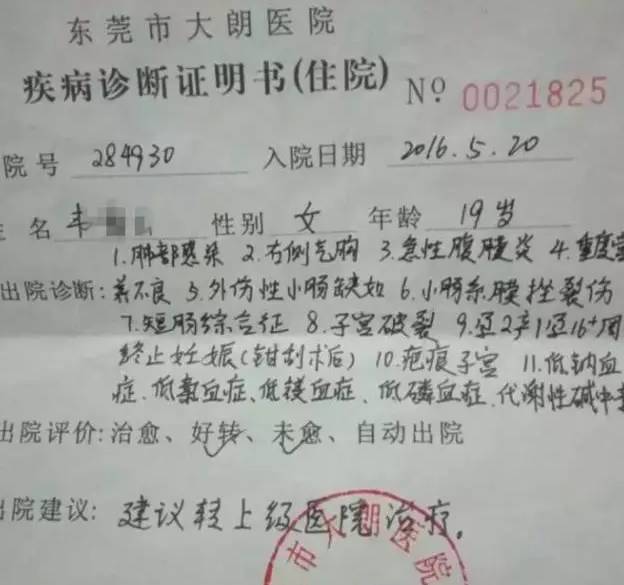 东莞市大朗医院
疾病诊断证明书(住院) Nº 0021825
院号 284930 入院日期 2016.5.20
名 韦 性别 女 年龄 19岁
1.肺部感染 2.右侧气胸 3.急性腹膜炎 4.重度营
出院诊断: 养不良 5.外伤性小肠缺如 6.小肠系膜挫裂伤
7.短肠综合征 8.子宫破裂 9.孕2产1孕16+周
终止妊娠(钳刮术后) 10.疤痕子宫 11.低钠血
症、低氯血症、低镁血症、低磷血症、代谢性碱中毒
出院评价: 治愈、好转、未愈、自动出院
出院建议: 建议转上级医院治疗。
市大朗医院